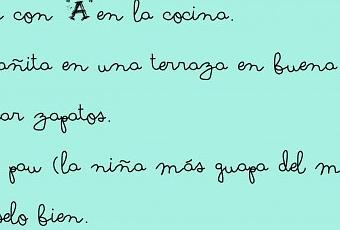 con "A" en la cocina.
añita en una terraza en buena
ar zapatos.
pau (la niña más guapa del m
selo bien.